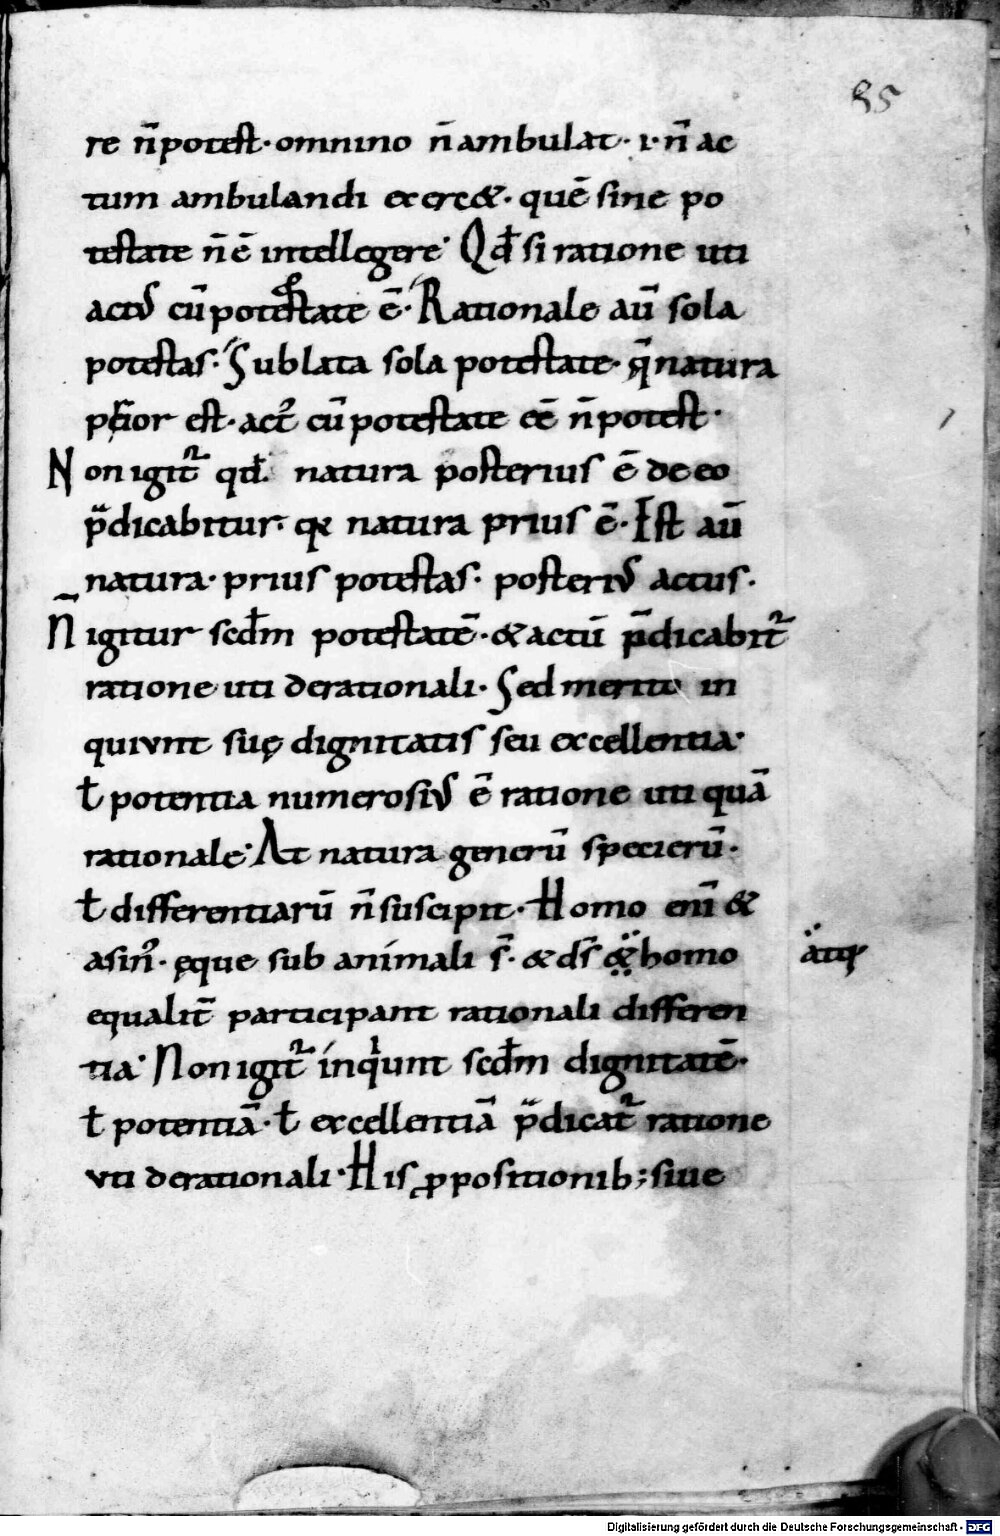 85
re n̄ potest· omnino n̄ ambulat· ·i· n̄ ac
tum ambulandi exerc&· quē sine po
testate n̄ ē intellegere· Qđ si ratione uti
actus cū potestate ē· Rationale aū sola
potestas· Sublata sola potestate· q̄ natura
prior est· act᾿ cū potestate eē n̄ potest·
Non igit᷑ qđ· natura posterius ē de eo
p̄dicabitur· qđ natura prius ē· Est aū
natura· prius potestas· posterius actus·
N̄ igitur scđm potestatē· & actū p̄dicabit᷑
ratione uti de rationali· Sed merito in
quiunt suę dignitatis seu excellentia·
ł potentia numerosius ē ratione uti quā
rationale· At natura generū specierū·
ł differentiarū n̄ suscipit· Homo eni &
asin᾿· ęque sub animali s̄· & ds̄ & homo
atq;
equalit̄ participant rationali differen
tia· Non igit᷑ inquiunt scđm dignitatē·
ł potentiā· ł excellentiā p̄dicat᷑ ratione
uti de rationali· His ꝓpositionib; siue
Digitalisierung gefördert durch die Deutsche Forschungsgemeinschaft - DFG